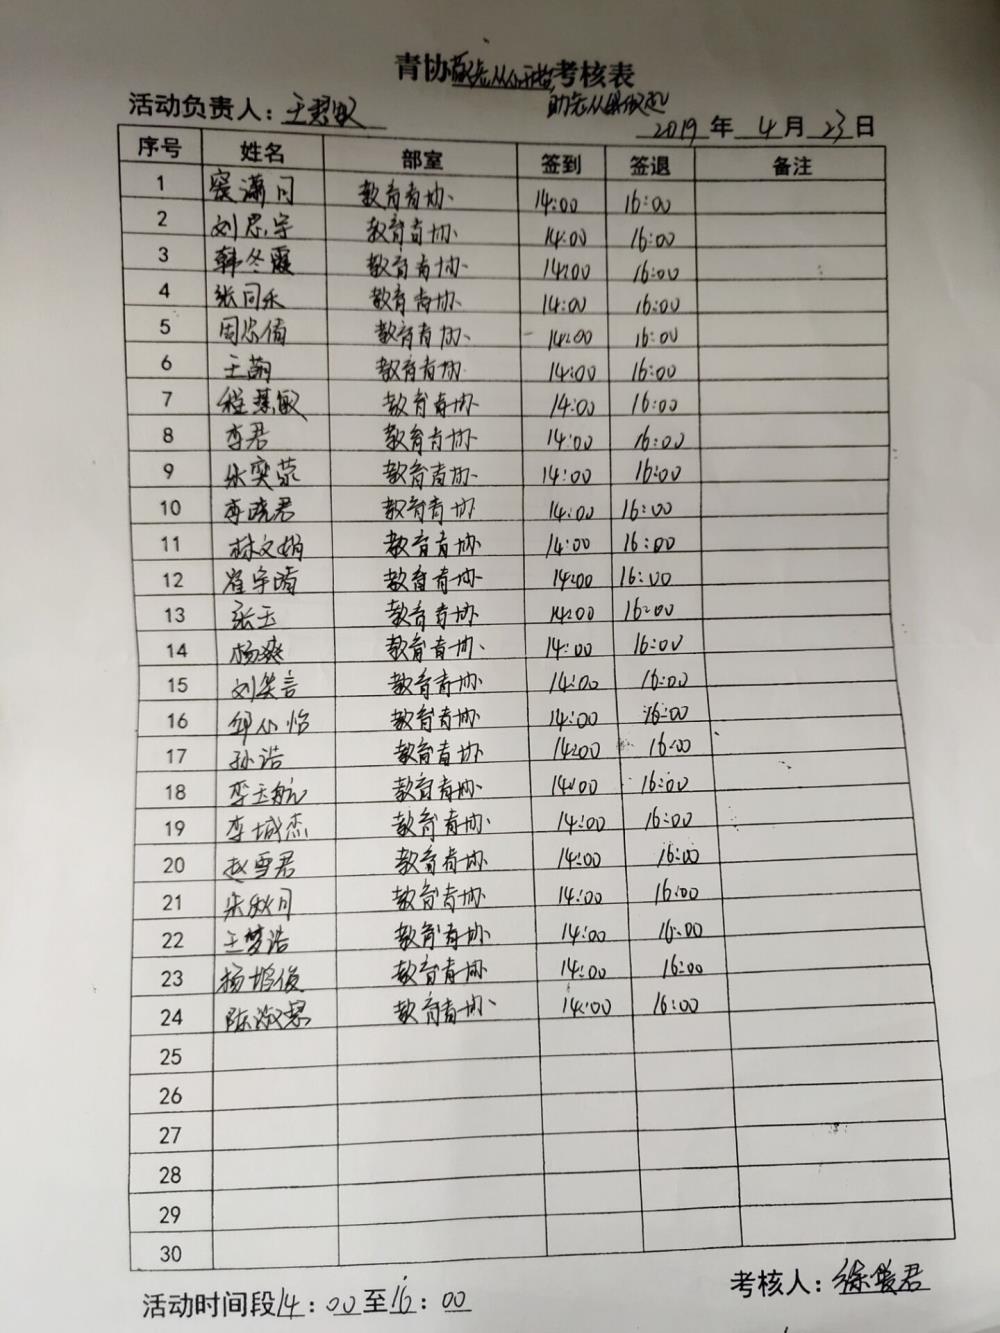 青协敬老从心开始考核表
助老从我做起
活动负责人：王碧敏
2019年 4月 23日
序号 姓名 部室 签到 签退 备注
1 潇 教育青协 14:00 16:00
2 刘思宇 教育青协 14:00 16:00
3 韩冬霞 教育青协 14:00 16:00
4 张同乐 教育青协 14:00 16:00
5 周忠倩 教育青协 14:00 16:00
6 王萌 教育青协 14:00 16:00
7 程慧敏 教育青协 14:00 16:00
8 李君 教育青协 14:00 16:00
9 荣 教育青协 14:00 16:00
10 李晓君 教育青协 14:00 16:00
11 林文娟 教育青协 14:00 16:00
12 崔宇晴 教育青协 14:00 16:00
13 张玉 教育青协 14:00 16:00
14 杨爽 教育青协 14:00 16:00
15 刘笑言 教育青协 14:00 16:00
16 邱小怡 教育青协 14:00 16:00
17 孙浩 教育青协 14:00 16:00
18 李玉航 教育青协 14:00 16:00
19 李城杰 教育青协 14:00 16:00
20 赵雪君 教育青协 14:00 16:00
21 宋秋月 教育青协 14:00 16:00
22 王梦浩 教育青协 14:00 16:00
23 杨俊 教育青协 14:00 16:00
24 陈淑 教育青协 14:00 16:00
25
26
27
28
29
30
活动时间段14：00至16：00
考核人：徐媛君